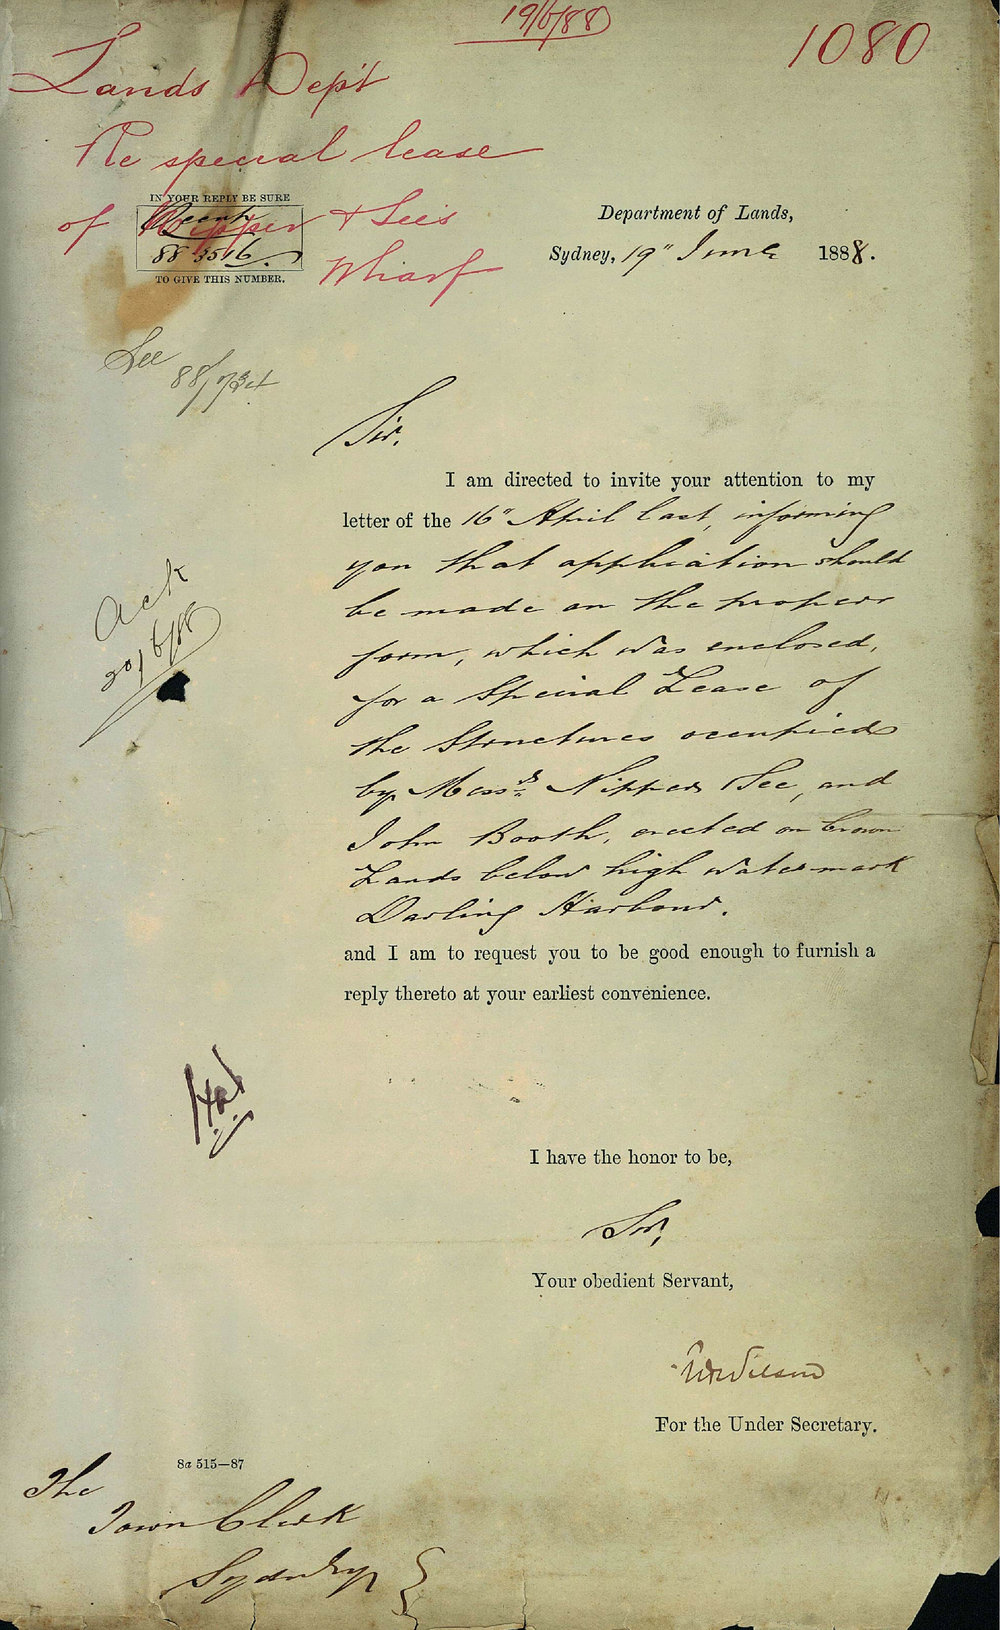 19/6/88
1080
Lands Dep't
Re special lease
of Nipper & See's
Wharf
IN YOUR REPLY BE SURE
88 3516
TO GIVE THIS NUMBER.
Department of Lands,
Sydney, 19" June 1888.
See
88/734
Sir,
I am directed to invite your attention to my
letter of the 16" April last, informing
you that application should
be made on the proper
form, which was enclosed,
for a Special Lease of
the Structures occupied
by Messrs Nipper & See, and
John Booth, erected on Crown
Lands below high water mark
Darling Harbour.
and I am to request you to be good enough to furnish a
reply thereto at your earliest convenience.
Ack
20/6/88
I have the honor to be,
Sir,
Your obedient Servant,
For the Under Secretary.
8a 515—87
The
Town Clerk
Sydney